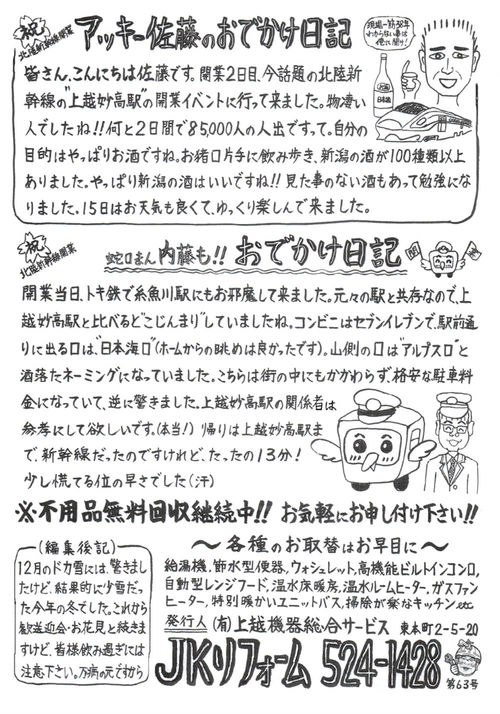 祝
北陸新幹線開業
アッキー佐藤のおでかけ日記
現場一筋38年
わからない事は
俺に聞け!
皆さん、こんにちは佐藤です。開業2日目、今話題の北陸新
幹線の"上越妙高駅"の開業イベントに行って来ました。物凄い
人でしたね!!何と2日間で85,000人の人出ですって。自分の
目的はやっぱりお酒ですね。お猪口片手に飲み歩き、新潟の酒が100種類以上
ありました。やっぱり新潟の酒はいいですね!!見た事のない酒もあって勉強にな
りました。15日はお天気も良くて、ゆっくり楽しんで来ました。
祝
北陸新幹線開業
蛇口まん内藤も!!おでかけ日記
開業当日、トキ鉄で糸魚川駅にもお邪魔して来ました。元々の駅と共存なので、上
越妙高駅と比べると"こじんまり"していましたね。コンビニはセブンイレブンで、駅前通
りに出る口は、"日本海口"(ホームからの眺めは良かったです)。山側の口は"アルプス口"と
洒落たネーミングになっていました。こちらは街の中にもかかわらず、格安な駐車料
金になっていて、逆に驚きました。上越妙高駅の関係者は
参考にして欲しいです。(本当!)帰りは上越妙高駅ま
で、新幹線だったのですけれど、たったの13分!
少し慌てる位の早さでした(汗)
※不用品無料回収継続中!!お気軽にお申し付け下さい!!
(編集後記)
12月のドカ雪には、驚きまし
たけど、結果的に少雪だっ
た今年の冬でした。これから
歓送迎会・お花見と続きま
すけど、皆様飲み過ぎには
注意下さい。万病の元ですから
～各種のお取替はお早目に～
給湯機、節水型便器、ウォシュレット、高機能ビルトインコンロ、
自動型レンジフード、温水床暖房、温水ルームヒーター、ガスファン
ヒーター、特別暖かいユニットバス、掃除が楽なキッチンetc
発行人(有)上越機器総合サービス 東本町2-5-20
JKリフォーム 524-1428
第63号